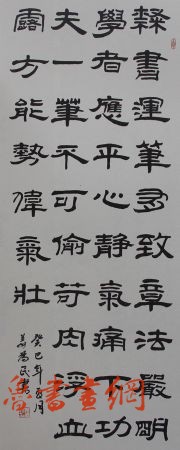 隸書運筆多致章法嚴明
學者應平心靜氣痛下功
夫一筆不可偷苟肉浮血
露方能勢偉氣壯
癸巳年月
書
魯書畫網